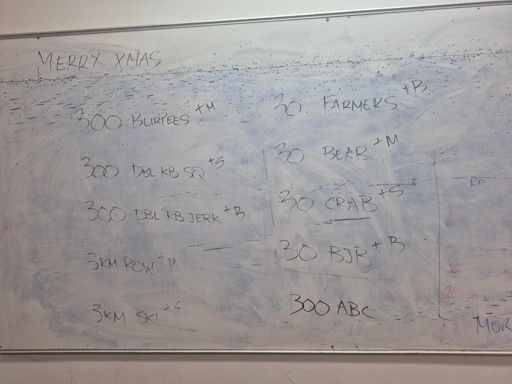 MERRY XMAS
300 BURPEES +M
300 DBL KB SQ +S
300 DBL KB JERK +B
3KM ROW +M
3KM SKI +S
30 FARMERS +B
30 BEAR +M
30 CRAB +S
30 BJB +B
300 ABC
MOR